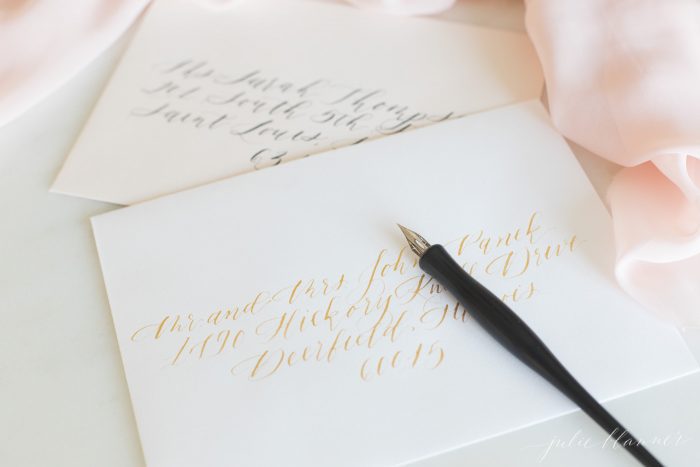 Ms Sarah Thomps
South 9th
Saint Louis,
63
Mr and Mrs. John Panek
1490 Hickory Knoll Drive
Deerfield, Illinois
60015
julie blanner